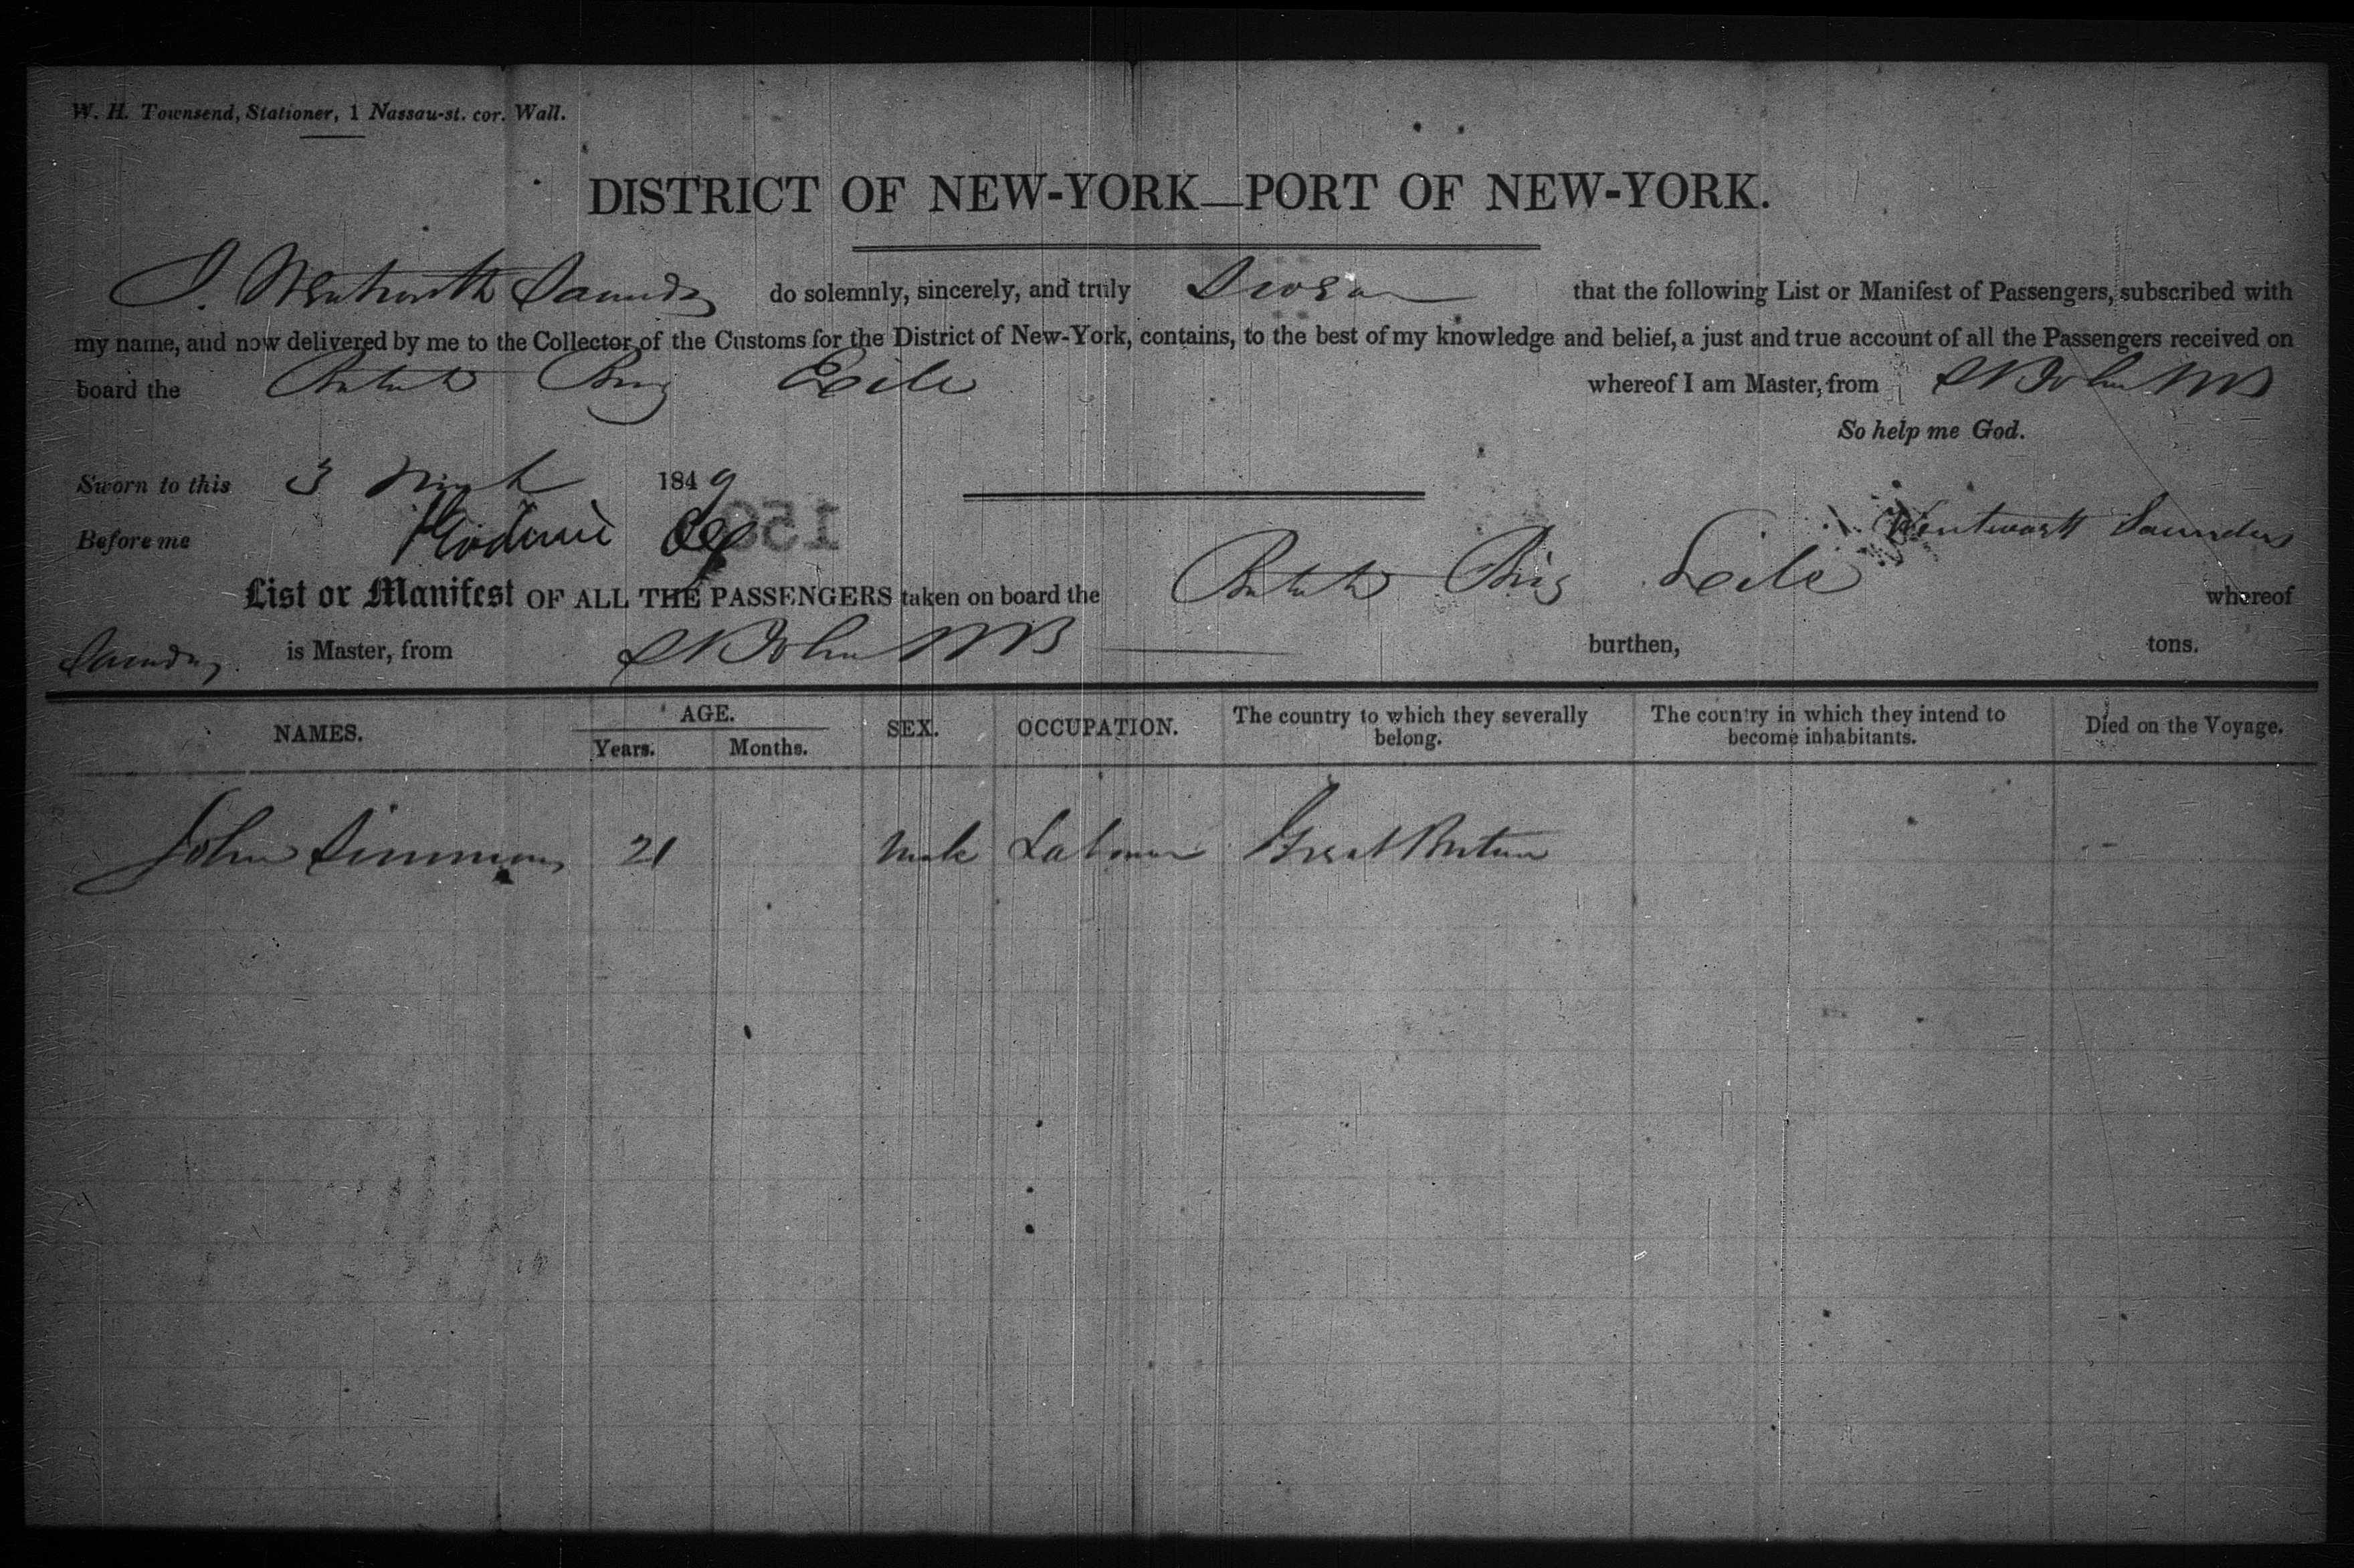 W. H. Townsend, Stationer, 1 Nassau-st. cor. Wall.
DISTRICT OF NEW-YORK—PORT OF NEW-YORK.
I, Wentworth Saunders do solemnly, sincerely, and truly Swear that the following List or Manifest of Passengers, subscribed with
my name, and now delivered by me to the Collector of the Customs for the District of New-York, contains, to the best of my knowledge and belief, a just and true account of all the Passengers received on
board the British Brig whereof I am Master, from St John NB
So help me God.
Sworn to this 3 1849
Wentworth Saunders
Before me
158
List or Manifest OF ALL THE PASSENGERS taken on board the British Brig whereof
Saunders is Master, from St John NB burthen, tons.
NAMES. AGE. SEX. OCCUPATION. The country to which they severally belong. The country in which they intend to become inhabitants. Died on the Voyage.
Years. Months.
John Simmons 21 Male Labourer Great Britain